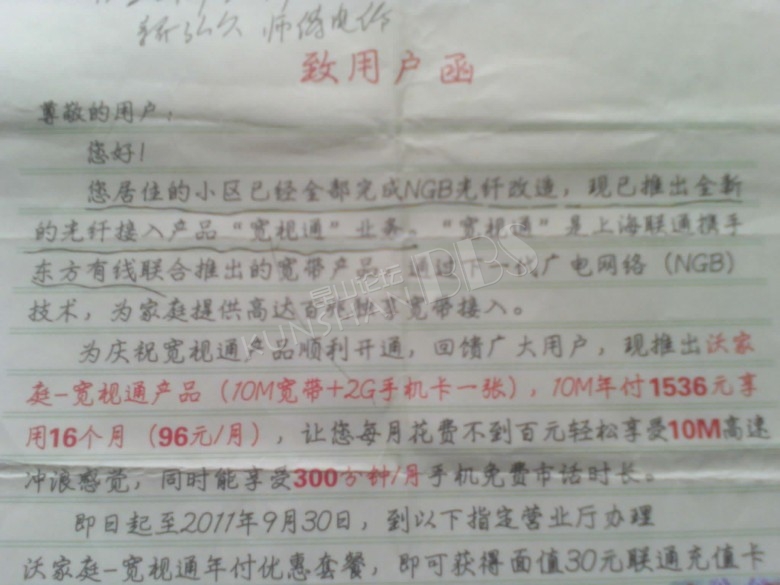 致用户函
尊敬的用户：
您好！
您居住的小区已经全部完成NGB光纤改造，现已推出全新
的光纤接入产品“宽视通”业务。“宽视通”是上海联通携手
东方有线联合推出的宽带产品，通过下一代广电网络（NGB）
技术，为家庭提供高达百兆独享宽带接入。
为庆祝宽视通产品顺利开通，回馈广大用户，现推出沃家
庭-宽视通产品（10M宽带+2G手机卡一张），10M年付1536元享
用16个月（96元/月），让您每月花费不到百元轻松享受10M高速
冲浪感觉，同时能享受300分钟/月手机免费市话时长。
即日起至2011年9月30日，到以下指定营业厅办理
沃家庭-宽视通年付优惠套餐，即可获得面值30元联通充值卡
昆山论坛
KUNSHAN BBS